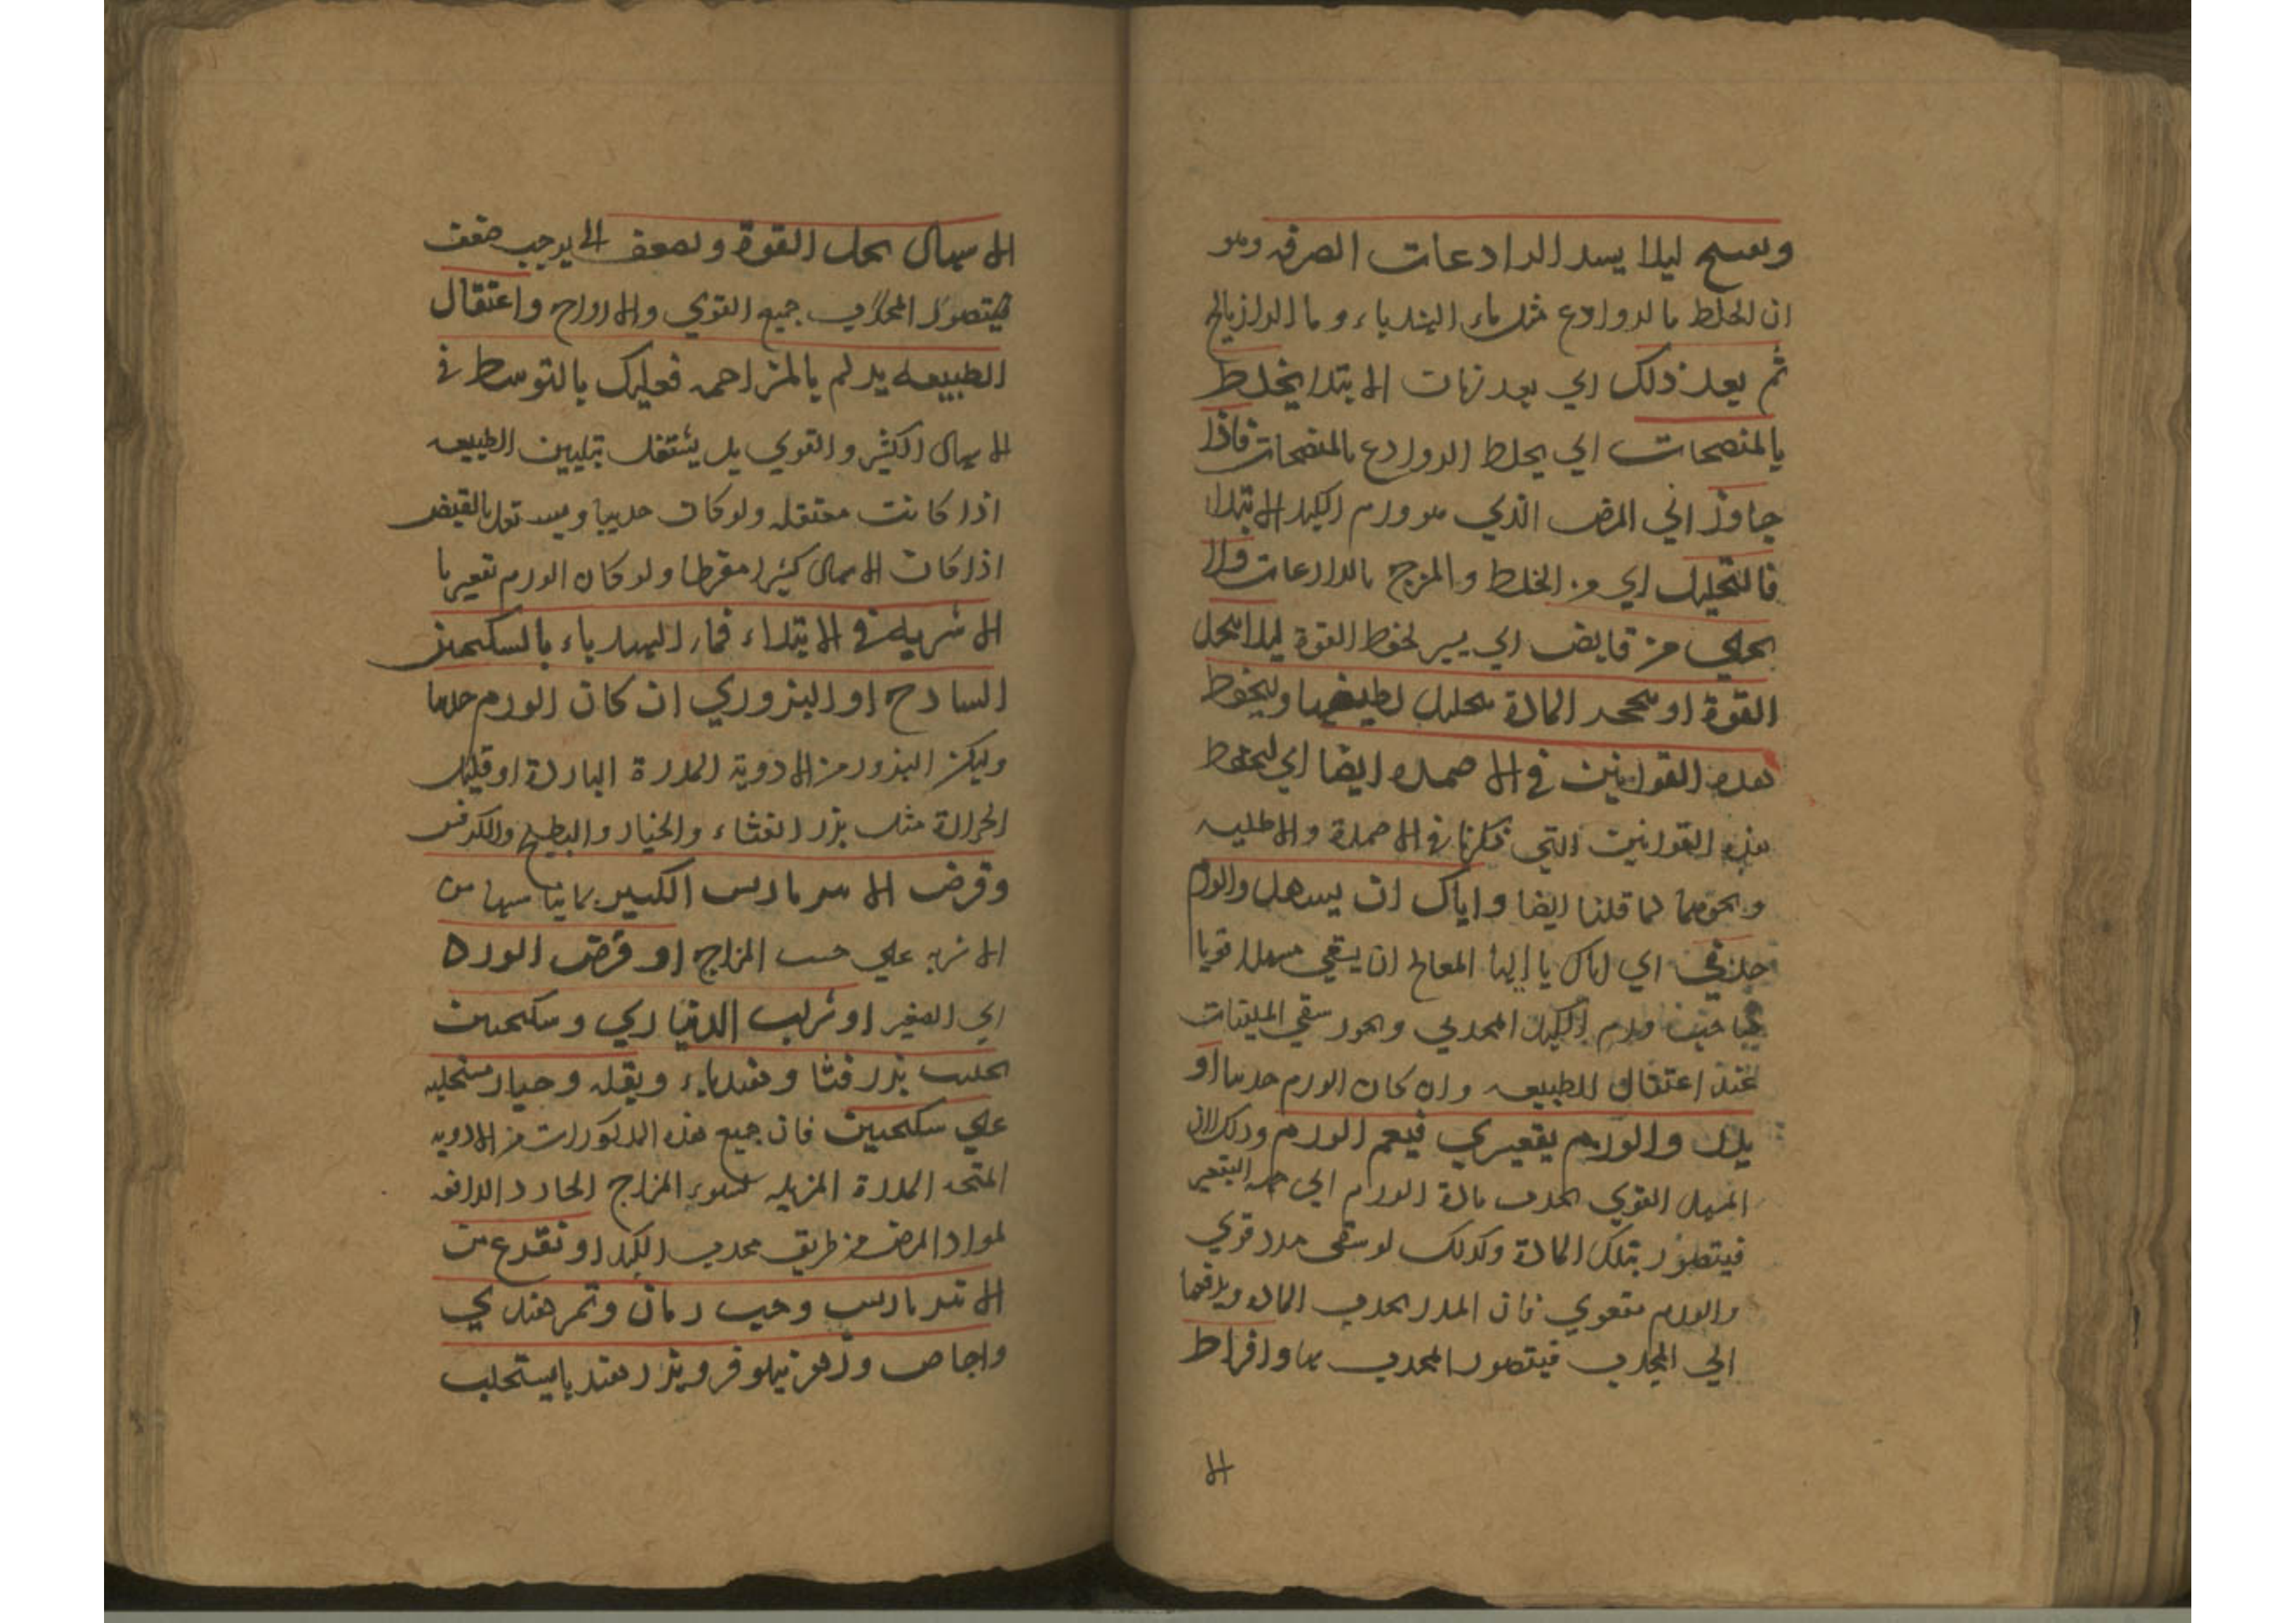 وىفىح ليلا يسد الرادعات الصرفه وهو
ان الخلط بالروادع مثل ماء الهندباء و ما الرازيانج
ثم بعد ذلك اي بعد زمان الابتدا يخلط
بالمنضجات اي يخلط الروادع بالمنضجات فاذا
جاوز اي المرض الذي هو ورم الكبد الابتدا
فالتحليل اي من الخلط والمزج بالرادعات ولا
يخلى من قابض اي يسير لحفظ القوة ليلا ينحل
القوة او يتحجر المادة بتحليل لطيفها وليحفظ
هذه القوانين في الاضمده ايضا اي ليحفظ
هذه القوانين التي ذكرنا في الاضمدة والاطليه
ونحوهما لما قلنا ايضا واياك ان يسهل والورم
حدبي اي اياك يا ايها المعالج ان يسقي مسهلا قويا
في حين ورم الكبد المحدبي ويجوز سقي الملينات
عند اعتقال الطبيعه وان كان الورم حدبيا او
يدر والورم تقعيري فيعم الورم وذلك لان
المسهل القوي يجذب مادة الورم الي جهه التقعير
فيتضرر بتلك المادة وكذلك لو سقي مدر قوي
والورم مقعري فان المدر يجذب الماده ويدفعها
الي المحدب فيتضرر المحدب بها وافراط
الا
الاسهال يحل القوة ويضعف اي يوجب ضعف
فيتضرر المحدب جميع القوي والارواح واعتقال
الطبيعه يولم بالمزاحمه فعليك بالتوسط في
الاسهال الكثير والقوي بل يشتغل بتليين الطبيعه
اذا كانت معتقله ولو كان حدبيا ويستعمل بالقبض
اذا كان الاسهال كثيرا مفرطا ولو كان الورم تقعيريا
الاشربه في الابتداء فماء الهندباء بالسكنجبين
السادج او البزوري ان كان الورم حدبيا
وليكن البزور من الادوية المدرة الباردة او قليل
الحرارة مثل بزر القثاء والخيار والبطيخ والكرفس
وقرص الامبرباريس الكبير بما يناسبها من
الاشربه علي حسب المزاج او قرص الورد
اي الصغير او شراب الديناري وسكنجبين
بحليب بزر قثا وهندباء وبقله وخيار مستحلبه
علي سكنجبين فان جميع هذه المذكورات من الادويه
المفتحه المدرة المزيله لسوء المزاج الحار والدافعه
لمواد المرض من طريق محدب الكبد او نقوع من
الانبرباريس وحب رمان وتمر هندي
واجاص وزهر نيلوفر وبزر هندبا يستحلب